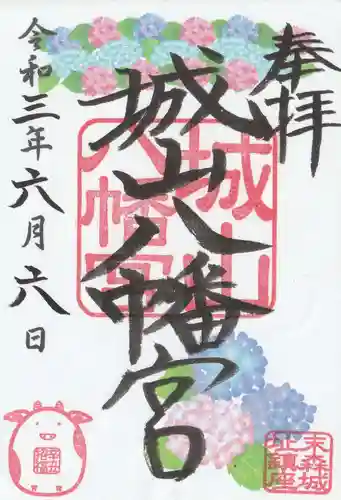 奉拝
城山八幡宮
令和三年六月六日
城山
八幡宮
末森城
址鎮座